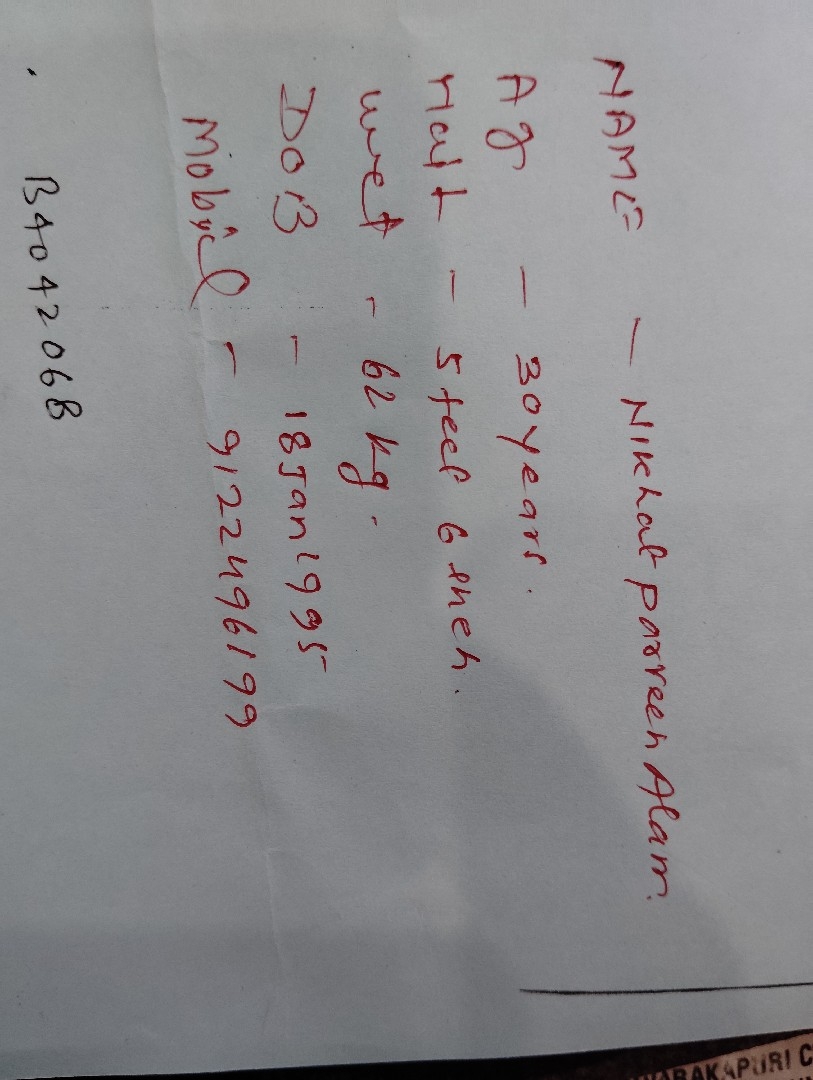 NAME - Nikhat Parveen Alam.
Ag - 30 years.
Hait - 5 feet 6 inch.
wet - 62 kg.
DOB - 18 Jan 1995
Mobil - 9122496199
B4042068
RAKAPURI C